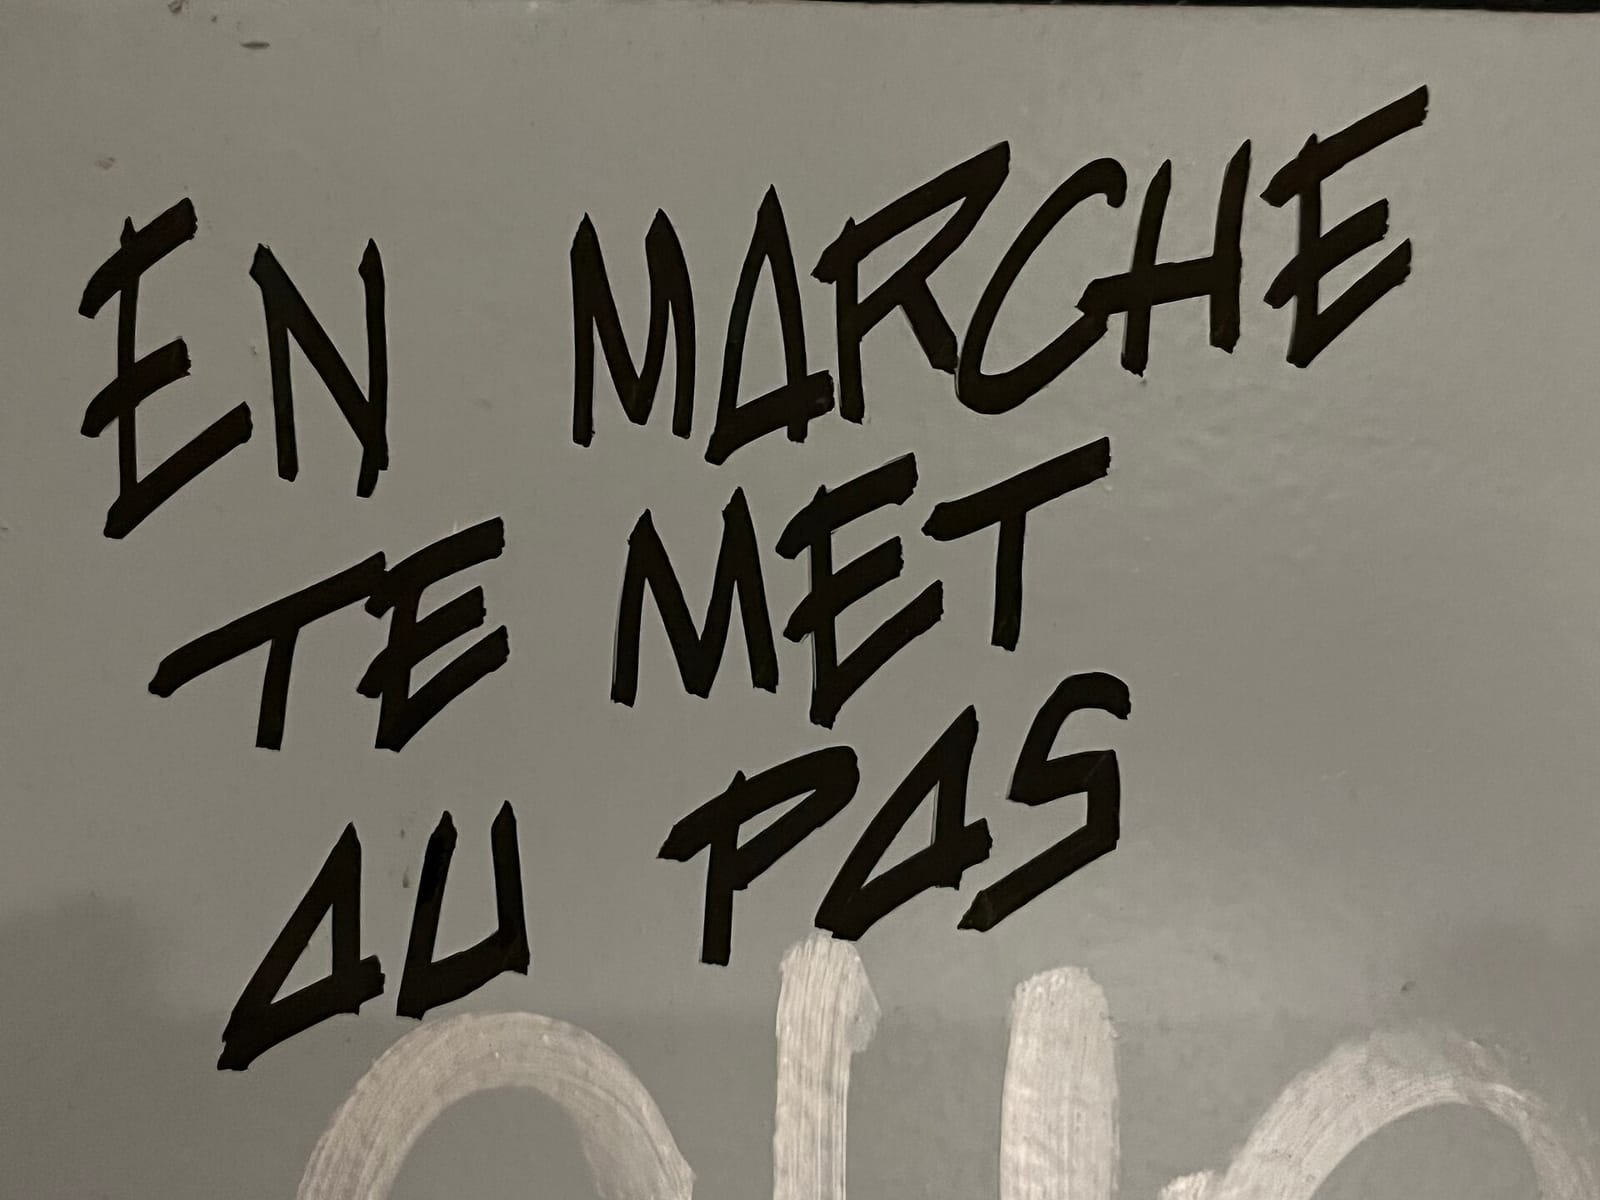 EN MARCHE
TE MET
AU PAS